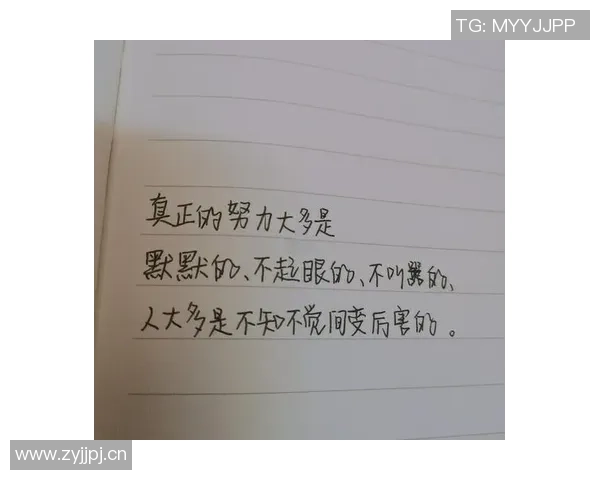 TG: MYYJJPP
真正的努力大多是
默默的、不起眼的、不叫嚣的、
人大多是不知不觉间变厉害的。
www.zyjjpj.cn